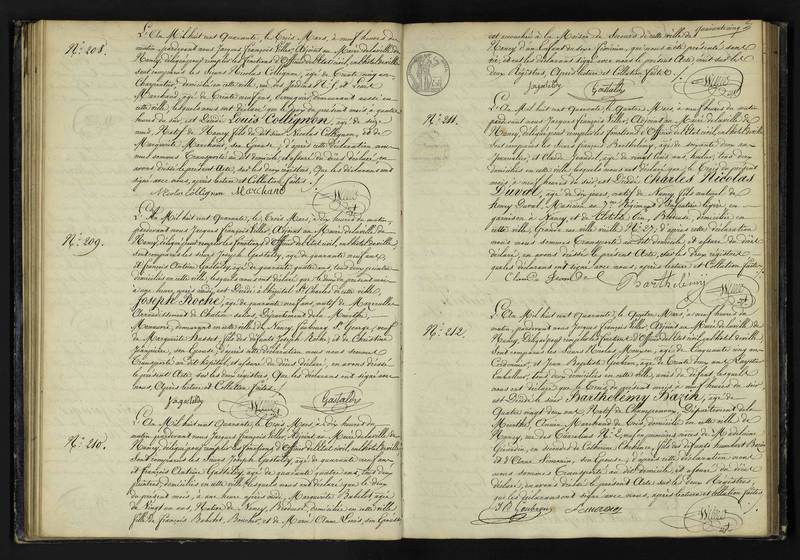 N.º 208.
L'An Mil huit cent Quarante, le Trois Mars, à neuf heures du
matin, pardevant nous Jacques François Villier, Adjoint au Maire de la ville de
Nancy, délégué pour remplir les fonctions d'Officier de l'Etat civil, en l'Hôtel de ville
sont comparus les Sieurs Nicolas Collignon, âgé de
Charpentier, domicilié en cette ville, rue des Jardins N.º et
Marchand, âgé de Trente neuf ans, demeurant aussi en
cette ville, lesquels nous ont déclaré que le jour du présent mois à quatre
heures du soir, est Décédé Louis Collignon, âgé de
mois, Natif de Nancy, fils du dit sieur Nicolas Collignon, et de
Marguerite Marchand, son Epouse, d'après cette déclaration nous
nous sommes Transporté au dit domicile, et assuré du décès déclaré, en
avons dressé le présent Acte, sur les deux registres. Que les déclarants ont
signé avec nous, après lecture et Collation faites.
Nicolas Collignon Marchand
N.º 209.
L'An Mil huit cent Quarante, le Trois Mars, à dix heures du matin,
pardevant nous Jacques François Villier, Adjoint au Maire de la ville de
Nancy, délégué pour remplir les fonctions d'Officier de l'Etat civil, en l'Hôtel de ville,
sont comparus les Sieurs Joseph Gastaldy, âgé de quarante neuf ans,
et françois Antoine Gastaldy, âgé de quarante quatre ans, tous deux
domiciliés en cette ville, lesquels nous ont déclaré que le deux du présent mois
à une heure après midi, est Décédé à l'hôpital S.t Charles de cette ville
Joseph Roche, âgé de quarante neuf ans, natif de
Arrondissement de Château-Salins, Département de la Meurthe,
Manœuvre, demeurant en cette ville de Nancy, faubourg S.t George, veuf
de Marguerite Basset, fils des défunts Joseph Roche, et de Christine
son Epouse, d'après cette déclaration nous nous sommes
Transporté au dit hôpital, et assuré du décès déclaré, en avons dressé
le présent Acte, sur les deux registres. Que les déclarants ont signé avec
nous, Après lecture et Collation faites.
Gastaldy
N.º 210.
L'An Mil huit cent Quarante, le Trois Mars, à dix heures du
matin, pardevant nous Jacques François Villier, Adjoint au Maire de la ville de
Nancy, délégué pour remplir les fonctions d'Officier de l'Etat civil, en l'Hôtel de ville
sont comparus les Sieurs Joseph Gastaldy, âgé de quarante neuf ans,
et françois Antoine Gastaldy, âgé de quarante quatre ans, tous deux
domiciliés en cette ville, lesquels nous ont déclaré que le deux
du présent mois, à une heure après midi, Marguerite Babelot âgée
de Vingt un ans, Native de Nancy, Brodeuse, domiciliée en cette ville
fille de françois Babelot, Boucher, et de Marie Anne Louis, son Epouse
est accouchée à la Maison de Secours de cette ville de
Nancy d'un Enfant du sexe féminin, qui nous a été présenté sans
vie, et ont les déclarants signé avec nous le présent Acte, inscrit sur les
deux Registres, Après lecture et Collation faites.
Gastaldy
N.º 211.
L'An Mil huit cent Quarante, le Quatre Mars, à neuf heures du matin,
pardevant nous Jacques François Villier, Adjoint au Maire de la ville de
Nancy, délégué pour remplir les fonctions d'Officier de l'Etat civil, en l'Hôtel de ville
Sont comparus les Sieurs françois Barthélemy, âgé de soixante deux ans
Journalier, et Claude âgé de vingt huit ans, tous deux
domiciliés en cette ville, lesquels nous ont déclaré, que le Trois du présent
mois, à neuf heures du soir, est Décédé Charles Nicolas
Duval, âgé de dix jours, natif de Nancy, fils naturel de
Henry Duval, Musicien au 7.me Régiment d'Infanterie légère, en
garnison à Nancy, et de Clotilde Brodeuse, domiciliée en
cette ville, Grande rue ville vieille N.º 27, d'après cette déclaration
nous nous sommes Transporté au dit domicile, et assuré du décès
déclaré, en avons dressé le présent Acte, sur les deux registres
que les déclarants ont signé avec nous, après lecture et Collation faites.
Barthélémy
N.º 212.
L'An Mil huit cent Quarante, le Quatre Mars, à neuf heures du
matin, pardevant nous Jacques François Villier, Adjoint au Maire de la ville de
Nancy, délégué pour remplir les fonctions d'Officier de l'Etat civil, en l'hôtel de ville
Sont comparus les Sieurs Nicolas âgé de Cinquante cinq ans
Cordonnier, et Jean Baptiste âgé de Trente deux ans,
tous deux domiciliés en cette ville, amis du défunt, lesquels
nous ont déclaré que le Trois du présent mois, à neuf heures du soir
est Décédé le sieur Barthélemy Bazin, âgé de
Quatre vingt deux ans, Natif de Champenoux, Département de la
Meurthe, Ancien Marchand de Bois, domicilié en cette ville de
Nancy, rue des N.º veuf en premières noces de Madeleine
en secondes de Catherine fils des défunts Humbert Bazin
et d'Anne Simonin, son Epouse, d'après cette déclaration nous
nous sommes Transporté au dit domicile, et assuré du décès
déclaré, en avons dressé le présent Acte sur les deux Registres,
que les déclarants ont signé avec nous, après lecture et Collation faites.